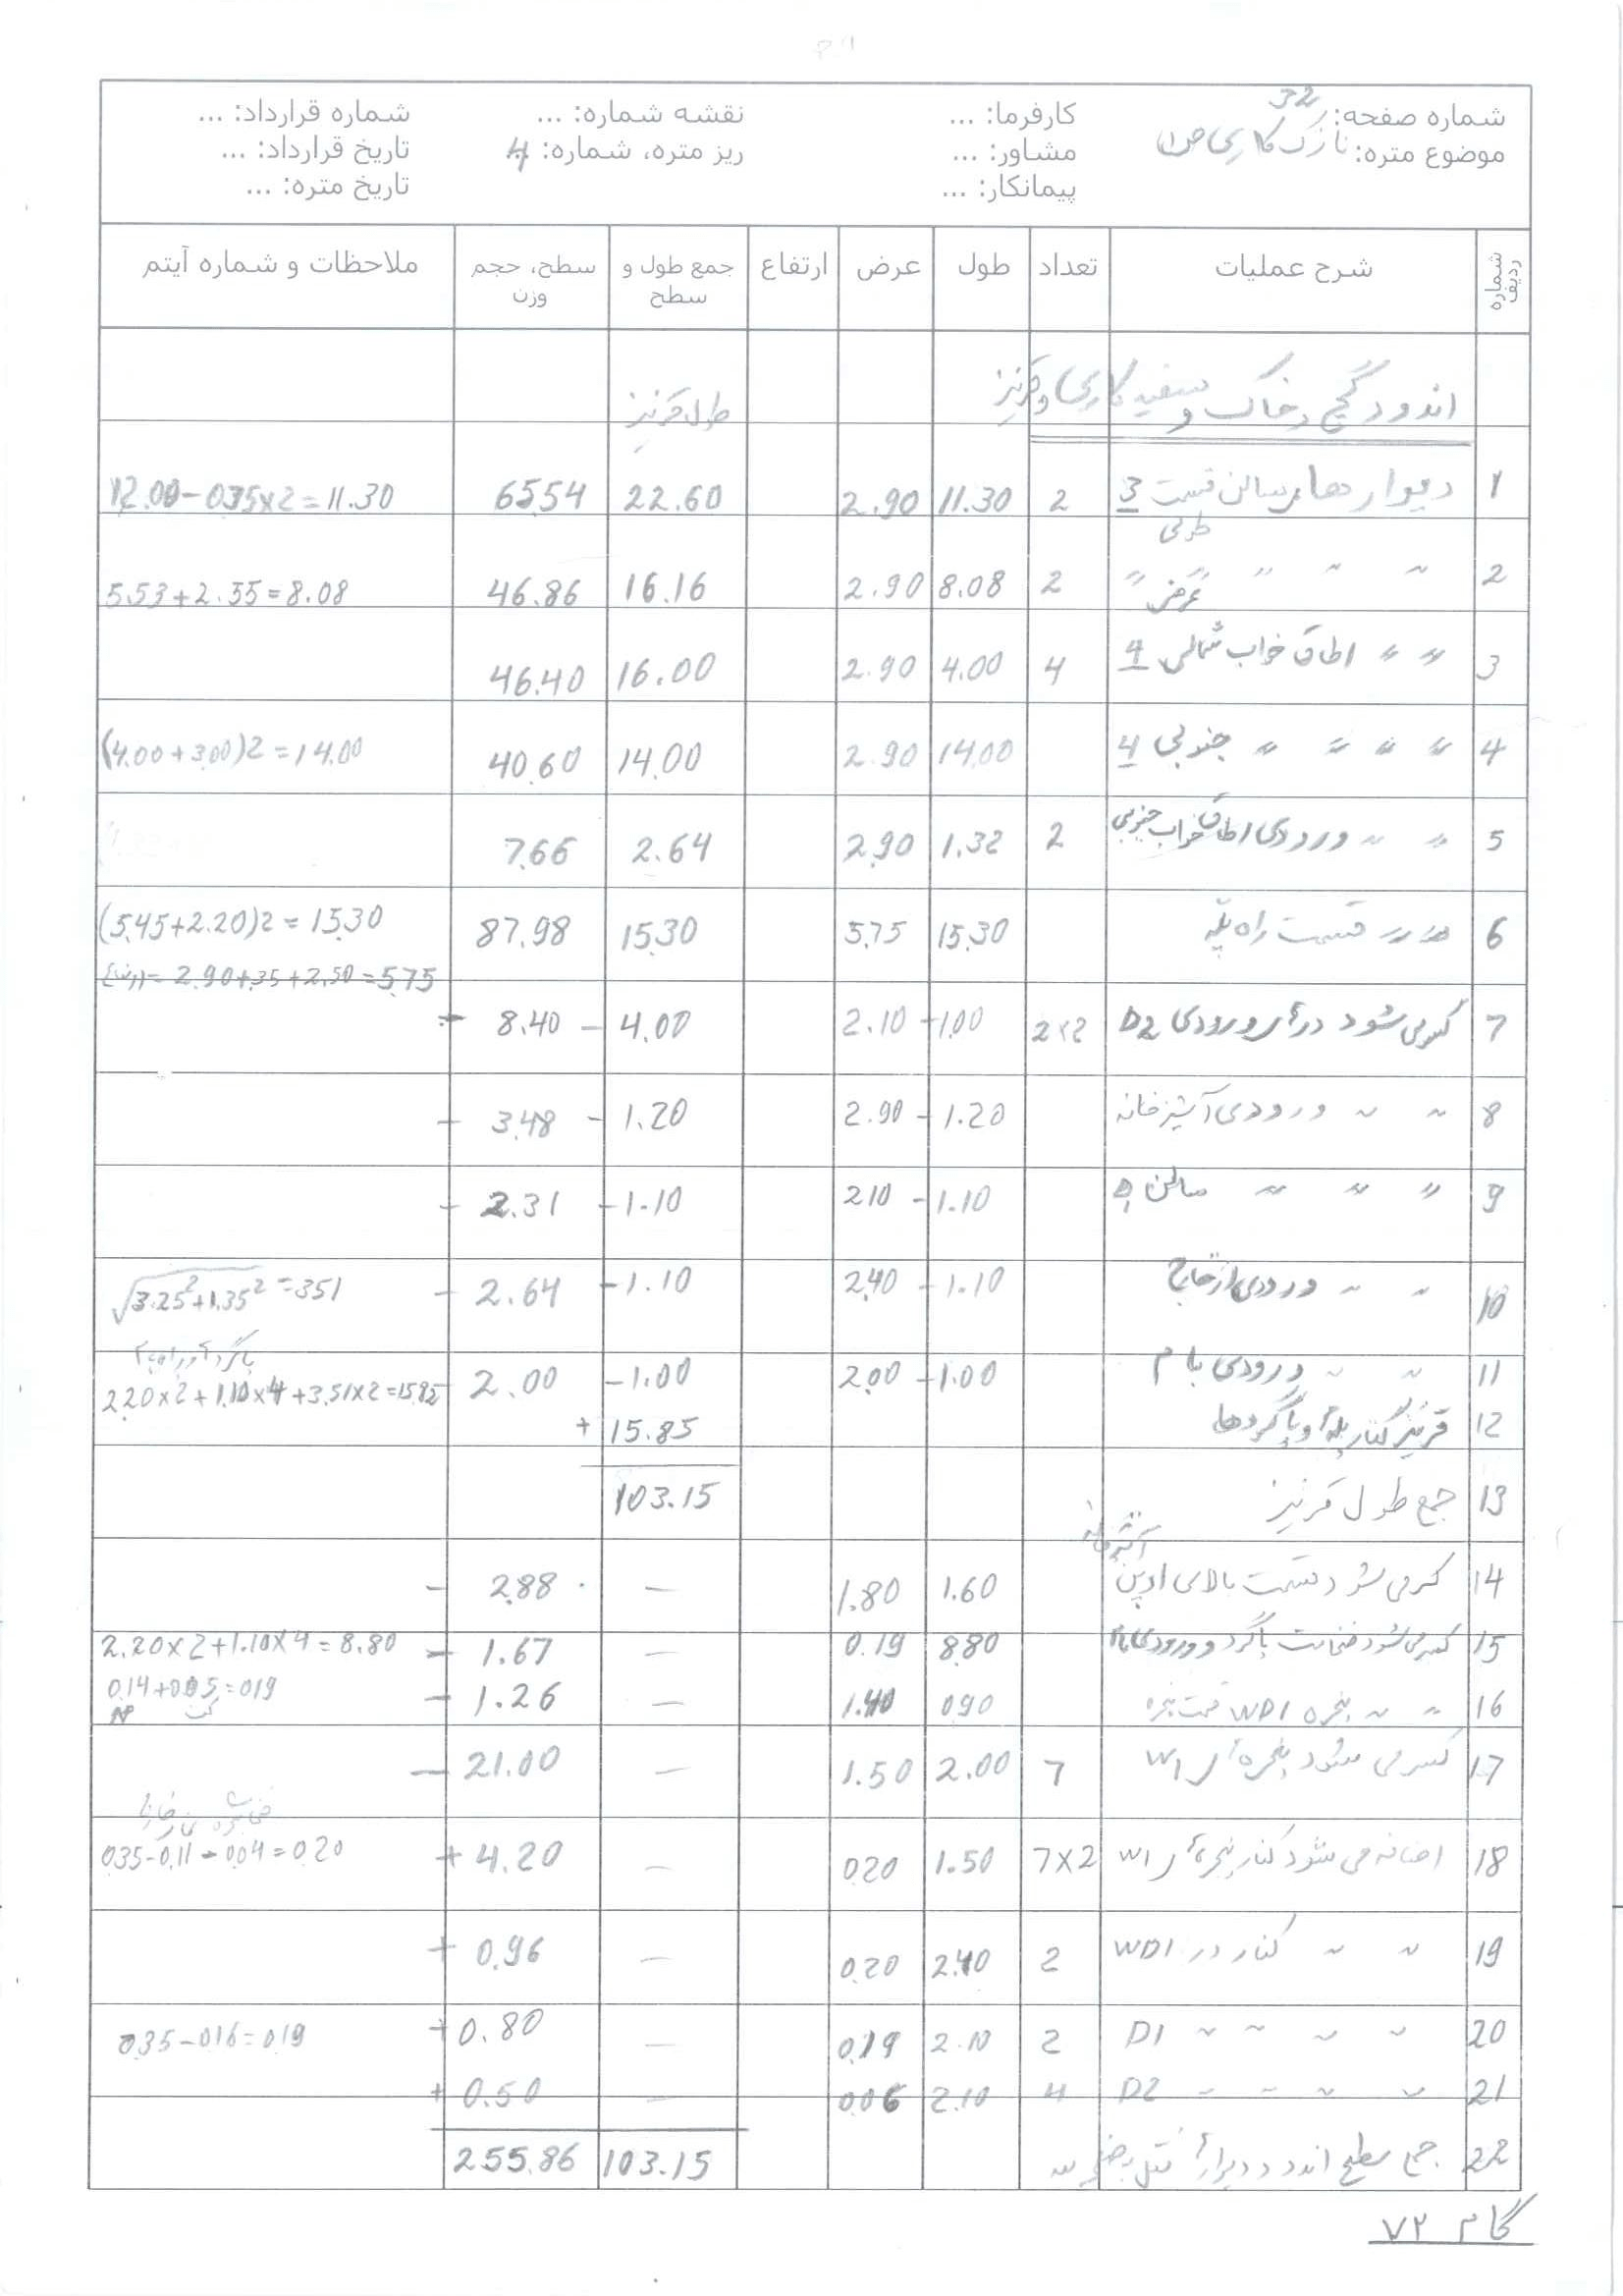 شماره صفحه: 32
موضوع متره: نازک کاری
کارفرما: ...
مشاور: ...
پیمانکار: ...
نقشه شماره: ...
ریز متره، شماره: 4
شماره قرارداد: ...
تاریخ قرارداد: ...
تاریخ متره: ...
شماره ردیف شرح عملیات تعداد طول عرض ارتفاع جمع طول و سطح سطح، حجم وزن ملاحظات و شماره آیتم
اندود گچ و خاک و سفید کاری و قرنیز طول قرنیز
1 دیوار های سالن قسمت 3 طولی 2 11.30 2.90 22.60 65.54 12.00-0.35×2=11.30
2 〃 〃 〃 عرضی 〃 2 8.08 2.90 16.16 46.86 5.53+2.55=8.08
3 〃 〃 اطاق خواب شمالی 4 4 4.00 2.90 16.00 46.40
4 〃 〃 〃 〃 جنوبی 4 14.00 2.90 14.00 40.60 (4.00+3.00)2=14.00
5 〃 〃 ورودی اطاق خواب جنوبی 2 1.32 2.90 2.64 7.66
6 〃 〃 قسمت راه پله 15.30 5.75 15.30 87.98 (5.45+2.20)2=15.30
2.90+.35+2.50=5.75
7 کسر می شود درهای ورودی D2 2×2 1.00 - 2.10 4.00 - 8.40 -
8 〃 〃 ورودی آشپزخانه 1.20 - 2.90 1.20 - 3.48 -
9 〃 〃 〃 سالن D1 1.10 - 2.10 1.10 - 2.31 -
10 〃 〃 ورودی از خارج 1.10 - 2.40 1.10 - 2.64 - √3.25²+1.35²=3.51
11 〃 〃 ورودی بام 1.00 - 2.00 1.00 - 2.00 -
12 قرنیز کنار پله و پاگردها 15.85 + 2.20×2+1.10×4+3.51×2=15.82
13 جمع طول قرنیز 103.15
14 کسر می شود قسمت بالای اوپن آشپزخانه 1.60 1.80 — 2.88 -
15 کسر می شود ضخامت پاگرد و ورودی 8.80 0.19 — 1.67 - 2.20×2+1.10×4=8.80
16 〃 〃 پنجره WD1 قسمت پنجره 0.90 1.40 — 1.26 - 0.14+0.05=0.19
17 کسر می شود پنجره های W1 7 2.00 1.50 — 21.00 -
18 اضافه می شود کنار پنجره های W1 7×2 1.50 0.20 — 4.20 + 0.35-0.11-0.04=0.20
19 〃 〃 کنار در WD1 2 2.40 0.20 — 0.96 +
20 〃 〃 〃 〃 D1 2 2.10 0.19 — 0.80 + 0.35-0.16=0.19
21 〃 〃 〃 〃 D2 4 2.10 0.06 — 0.50 +
22 جمع سطح اندود دیوارها 103.15 255.86
گام ۷۲